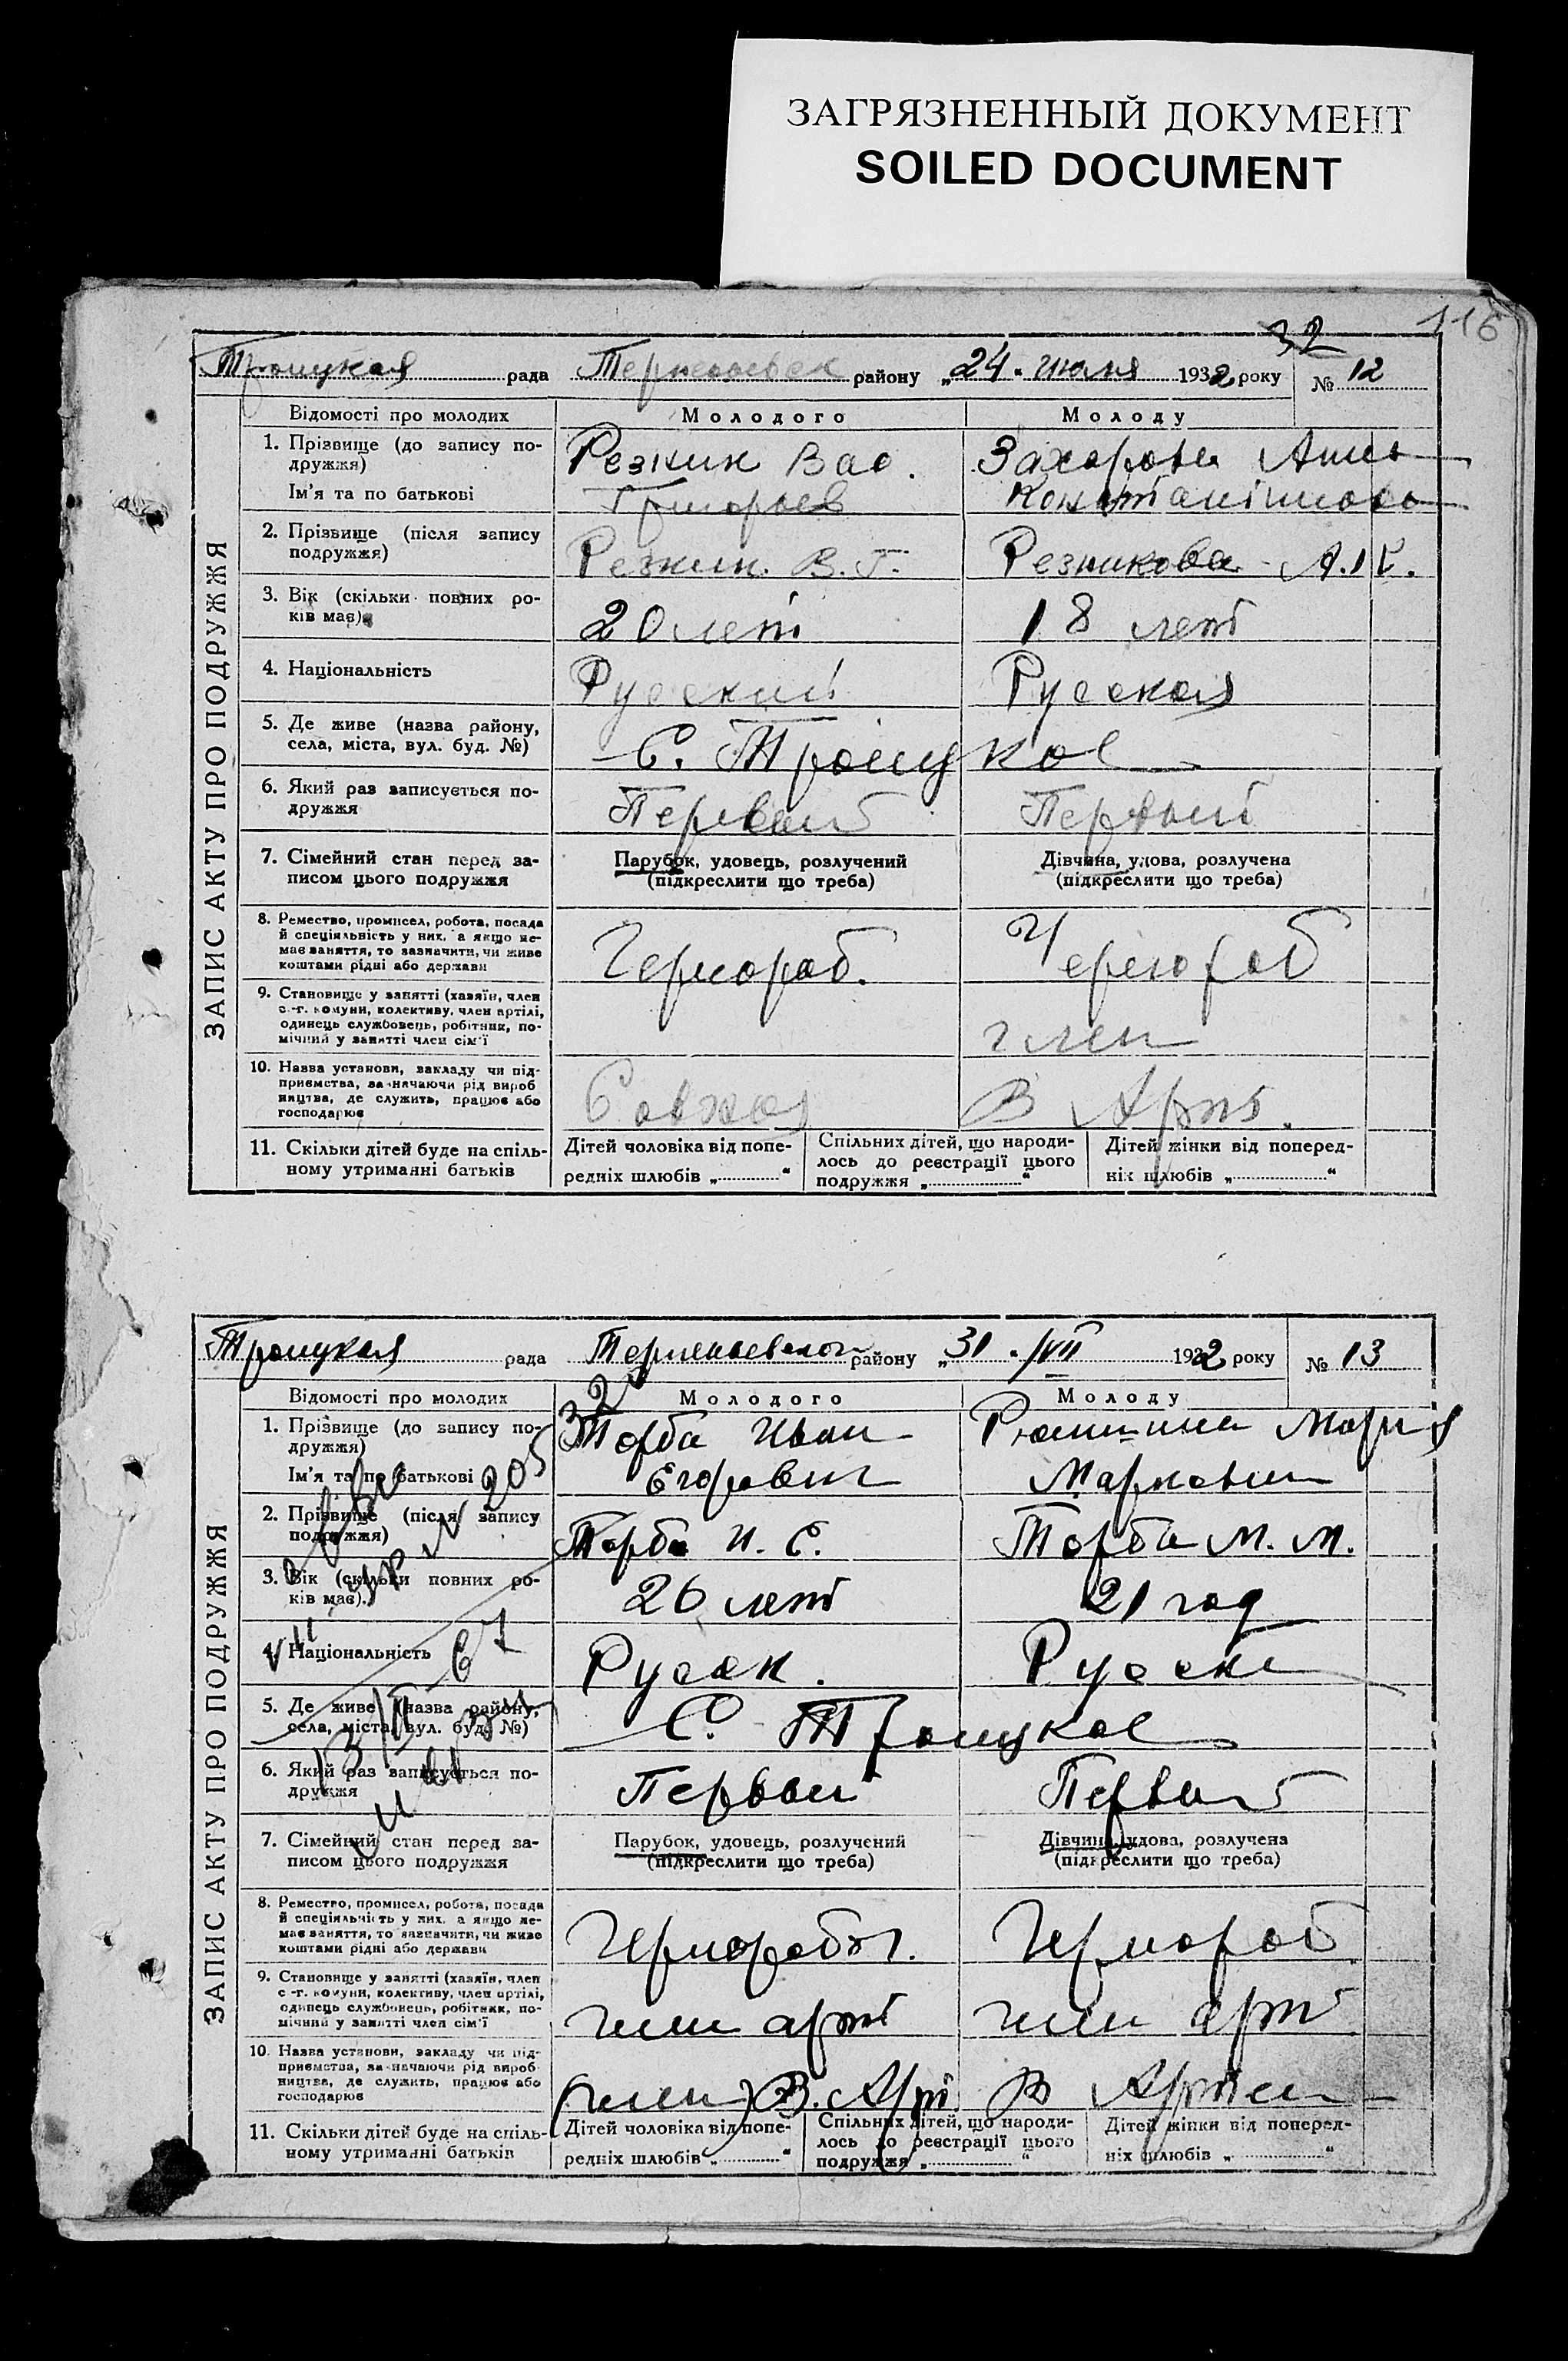 ЗАГРЯЗНЕННЫЙ ДОКУМЕНТ
SOILED DOCUMENT
116
32
Троицкая рада района району „24" июля 1932 року № 12
ЗАПИС АКТУ ПРО ПОДРУЖЖЯ
Відомості про молодих Молодого Молоду
1. Прізвище (до запису по-
дружжя)
Резник Вас. Захарова Анна
Ім'я та по батькові Григорьев Константиновна
2. Прізвище (після запису
подружжя)
Резник. В. Г. Резникова А. К.
3. Вік (скільки повних ро-
ків має)
20 лет 18 лет
4. Національність Русский Русская
5. Де живе (назва району,
села, міста, вул. буд. №)
С. Троицкое
6. Який раз записується по-
дружжя
Первый Первый
7. Сімейний стан перед за-
писом цього подружжя
Парубок, удовець, розлучений
(підкреслити що треба)
Дівчина, удова, розлучена
(підкреслити що треба)
8. Ремество, промисел, робота, посада
й спеціяльність у них, а якщо не-
має заняття, то зазначити, чи живе
коштами рідні або держави
Чернораб. Чернораб
9. Становище у занятті (хазяїн, член
с.-г. комуни, колективу, член артілі,
одинець службовець, робітник, по-
мічний у занятті член сім'ї
член
10. Назва установи, закладу чи під-
приємства, зазначаючи рід вироб
ництва, де служить, працює або
господарює
Совхоз В Арт.
11. Скільки дітей буде на спіль-
ному утриманні батьків
Дітей чоловіка від попе-
редніх шлюбів „ "
Спільних дітей, що народи-
лось до реєстрації цього
подружжя „ "
Дітей жінки від поперед-
ніх шлюбів „ "
Троицкая рада району „31" /VII 1932 року № 13
ЗАПИС АКТУ ПРО ПОДРУЖЖЯ
Відомості про молодих Молодого Молоду
32
1. Прізвище (до запису по-
дружжя)
Торба Иван Мария
Ім'я та по батькові Егорович Марковна
205
2. Прізвище (після запису
подружжя)
Торба И. Е. Торба М. М.
3. Вік (скільки повних ро-
ків має).
26 лет 21 год
4. Національність Русск. Русск
67
5. Де живе (назва району,
села, міста, вул. буд. №)
С. Троицкое
6. Який раз записується по-
дружжя
Первый Первый
7. Сімейний стан перед за-
писом цього подружжя
Парубок, удовець, розлучений
(підкреслити що треба)
Дівчина, удова, розлучена
(підкреслити що треба)
8. Ремество, промисел, робота, посада
й спеціяльність у них, а якщо не-
має заняття, то зазначити, чи живе
коштами рідні або держави
Чернораб Чернораб
9. Становище у занятті (хазяїн, член
с.-г. комуни, колективу, член артілі,
одинець службовець, робітник, по-
мічний у занятті член сім'ї
член арт член арт
10. Назва установи, закладу чи під-
приємства, зазначаючи рід вироб
ництва, де служить, працює або
господарює
(член) В. Арт. В Артел
11. Скільки дітей буде на спіль-
ному утриманні батьків
Дітей чоловіка від попе-
редніх шлюбів „ "
Спільних дітей, що народи-
лось до реєстрації цього
подружжя „ "
Дітей жінки від поперед-
ніх шлюбів „ "